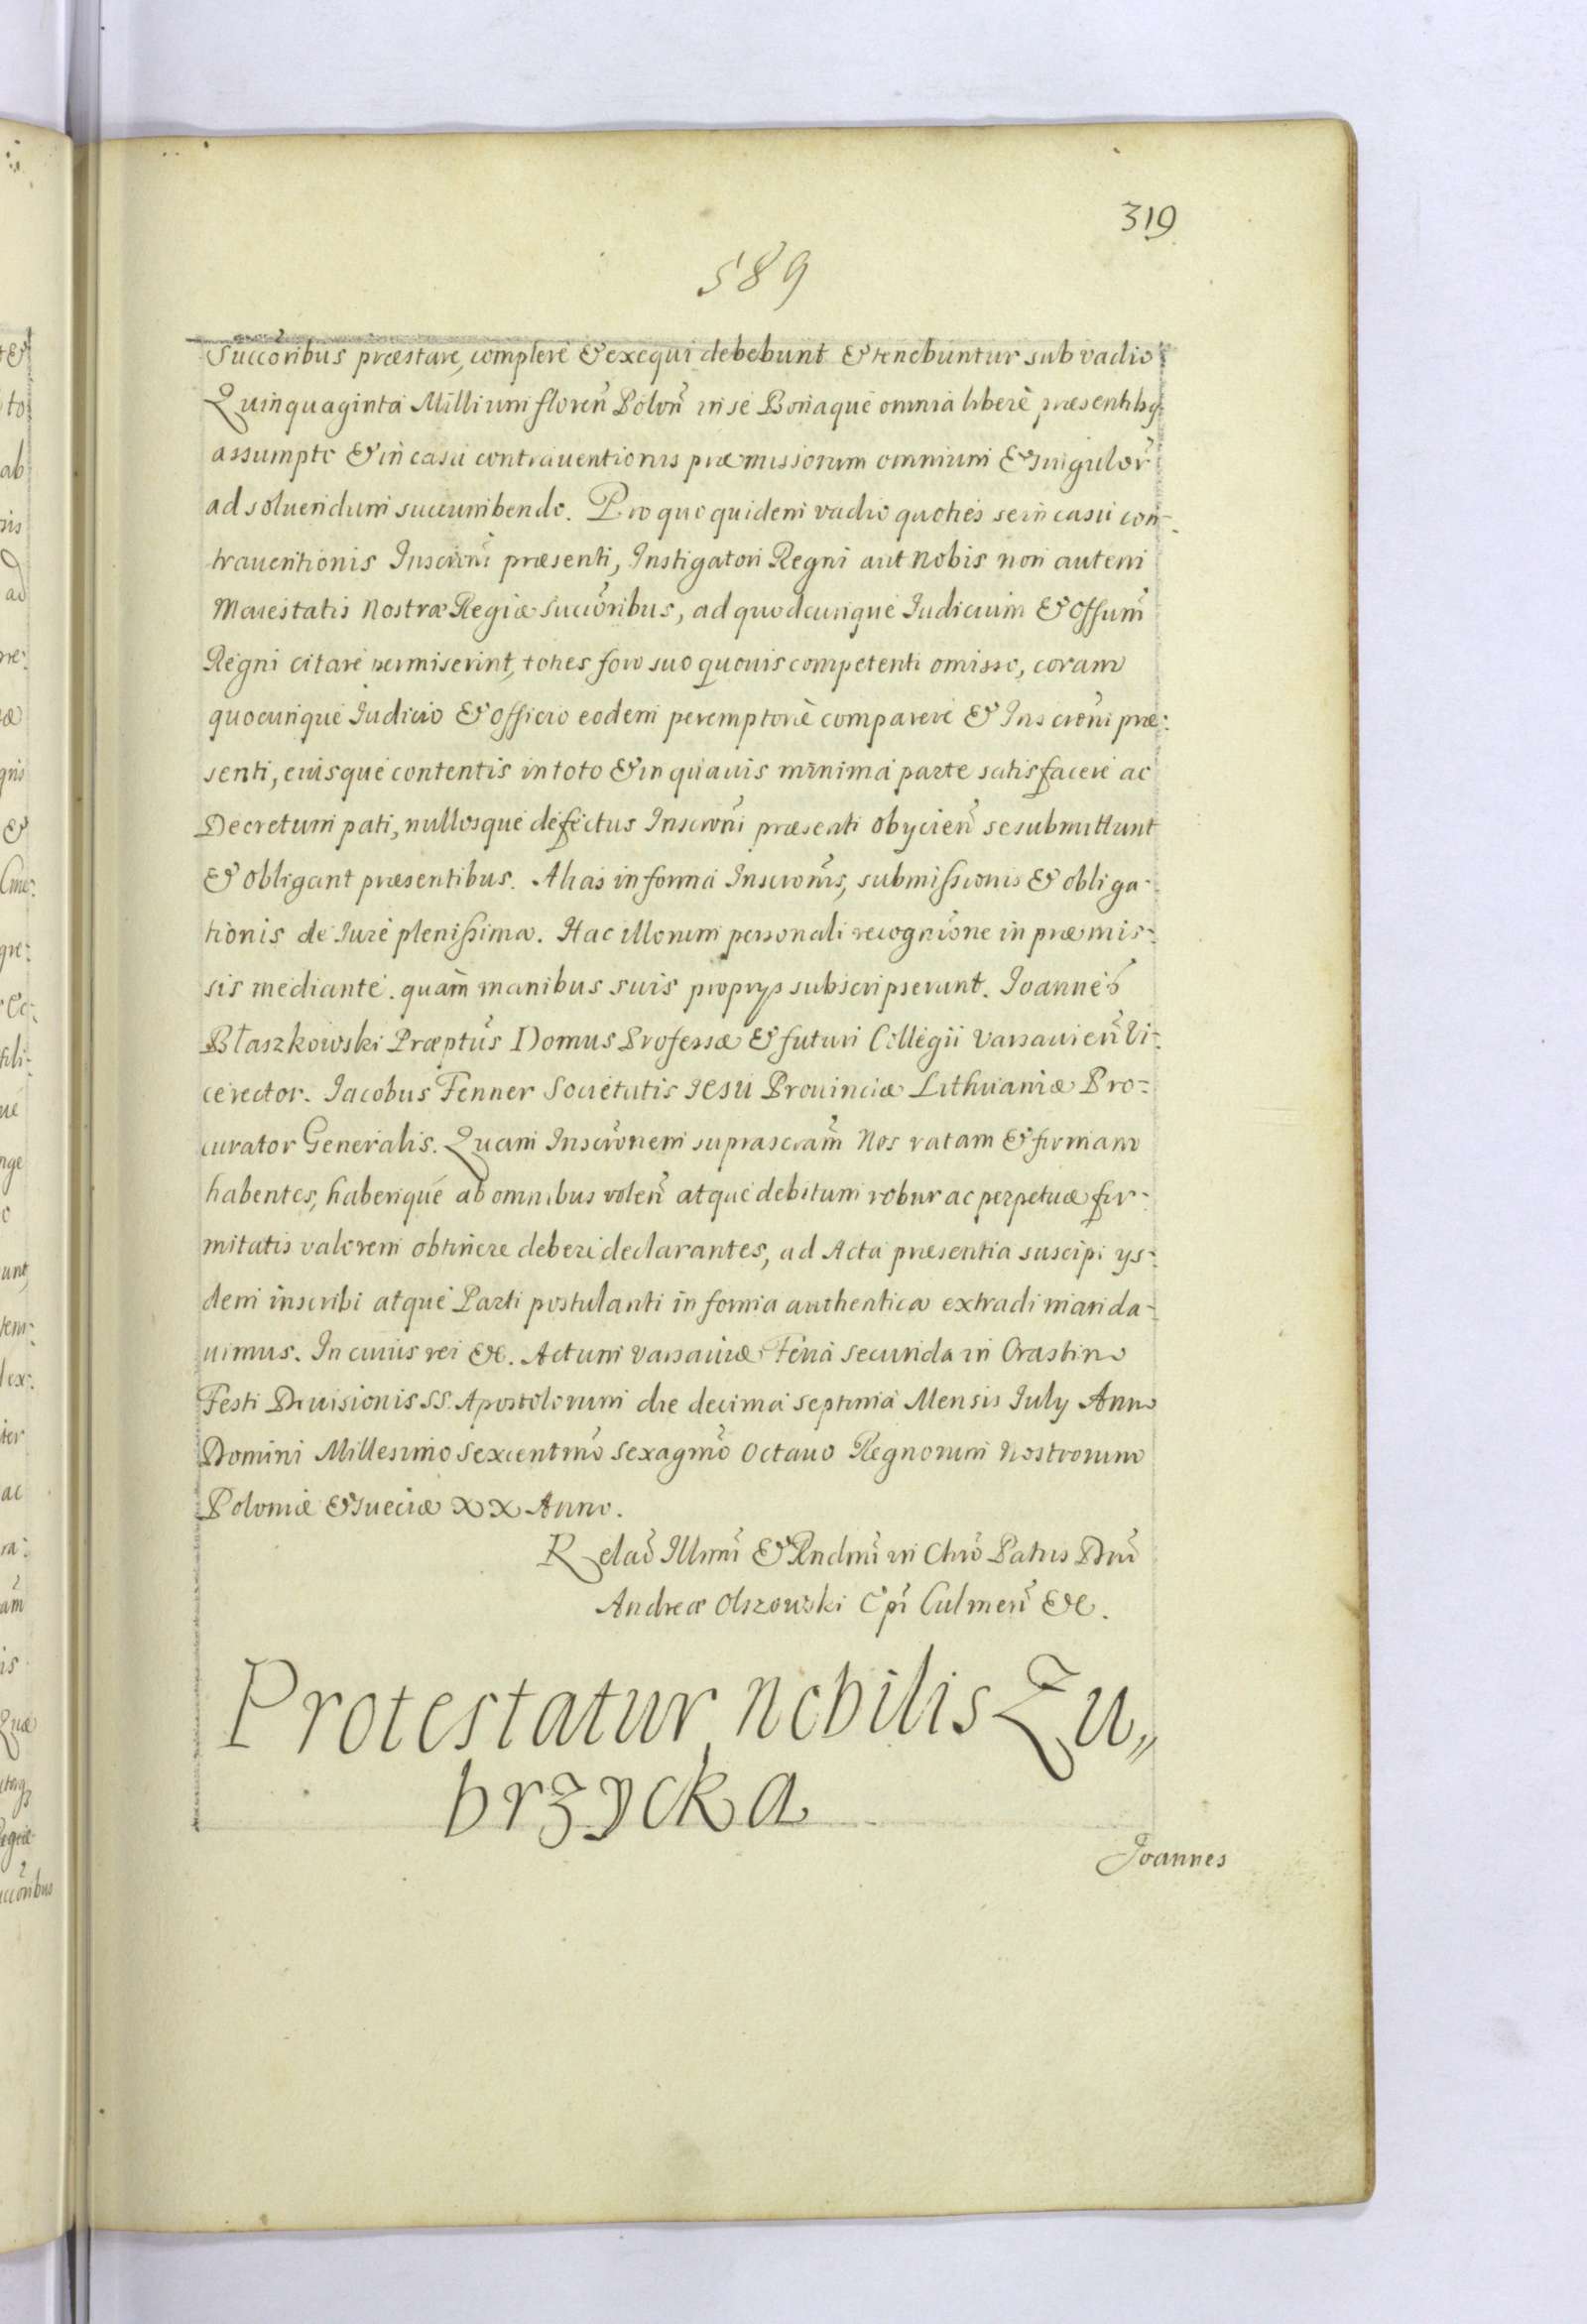 319
589
Succoribus præstare, complere & exequi debebunt & tenebuntur sub vadio
Quinquaginta Millium floren Polon in se Bonaque omnia liberè præsentibq
assumpto & in casu contrauentionis præmissorum omnium & singulor
ad soluendum succumbendo. Pro quo quidem vadio quoties se in casu con-
trauentionis Inscrōni præsenti, Instigatori Regni aut nobis non autem
Maiestatis Nostræ Regiæ succoribus, ad quodcunque Iudicium & Offum
Regni citare permiserint, toties foro suo quouis competenti omisso, coram
quocunque Iudicio & officio eodem peremptoriè comparere & Inscrōni præ:
senti, eiusque contentis in toto & in quauis minima parte satisfacere ac
Decretum pati, nullosque defectus Inscrōni præsenti obycien se submittunt
& obligant præsentibus. Alias in forma Inscrōnis, submissionis & obliga-
tionis de Iure plenissima. Hac illorum personali recognione in præmis-
sis mediante. quam manibus suis proprys subscripserunt. Joannes
Błaszkowski Præptus Domus Professæ & futuri Collegii Varsauien Vi-
cerector. Jacobus Fenner Societatis JESU Prouinciæ Lithuaniæ Pro-
curator Generalis. Quam Inscrōnem suprascram Nos ratam & firmam
habentes, haberique ab omnibus volen atque debitum robur ac perpetuæ fir-
mitatis valorem obtinere debere declarantes, ad Acta præsentia suscipi ys-
dem inscribi atque Parti postulanti in forma authentica extradi manda-
uimus. In cuius rei &c. Actum Varsauiæ Feria secunda in Crastino
Festi Diuisionis SS. Apostolorum die decima septima Mensis July Anno
Domini Millesimo Sexcentmo Sexagmo Octauo Regnorum Nostrorum
Poloniæ & Sueciæ XX Anno.
Relao Illmi & Rndmi in Chro Patris Dni
Andreæ Olszowski Epi Culmen &c.
Protestatur nobilis Zu„
brzycka
Joannes